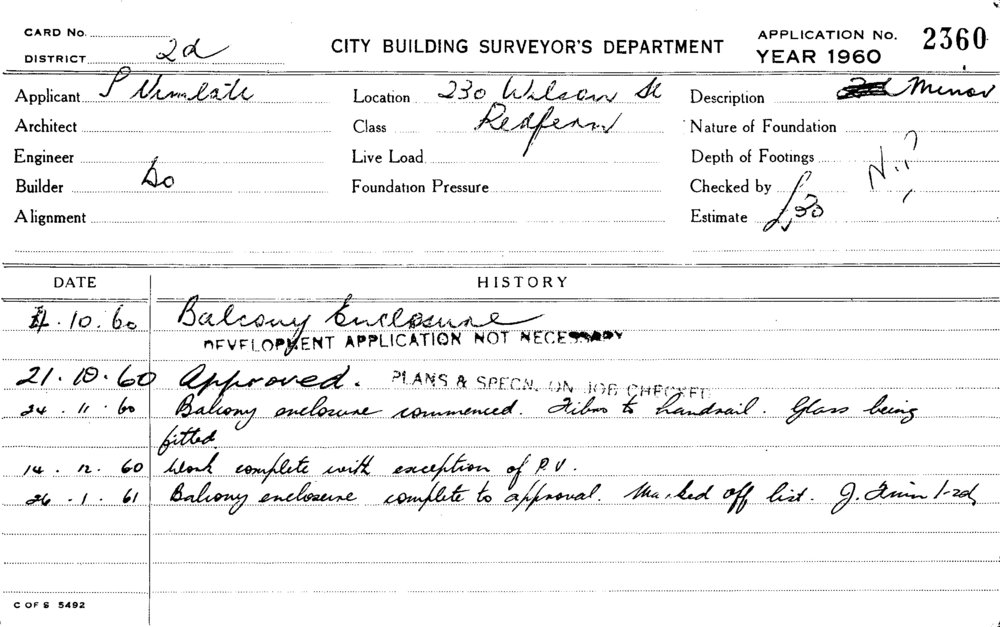 CARD No.
DISTRICT 2d
CITY BUILDING SURVEYOR'S DEPARTMENT
APPLICATION No. 2360
YEAR 1960
Applicant
Location 230 Wilson St
Description Minor
Architect
Class Redfern
Nature of Foundation
Engineer
Live Load
Depth of Footings
Builder Do
Foundation Pressure
Checked by
Alignment
Estimate £30
DATE HISTORY
10. 60 Balcony Enclosure
DEVELOPMENT APPLICATION NOT NECESSARY
21. 10. 60 Approved. PLANS & SPECN. ON JOB CHECKED
24 . 11 . 60 Balcony enclosure commenced. Fibro to handrail. Glass being
fitted.
14 . 12 . 60 Work complete with exception of P.V.
26 . 1 . 61 Balcony enclosure complete to approval. Marked off list. J.
C OF S 5492